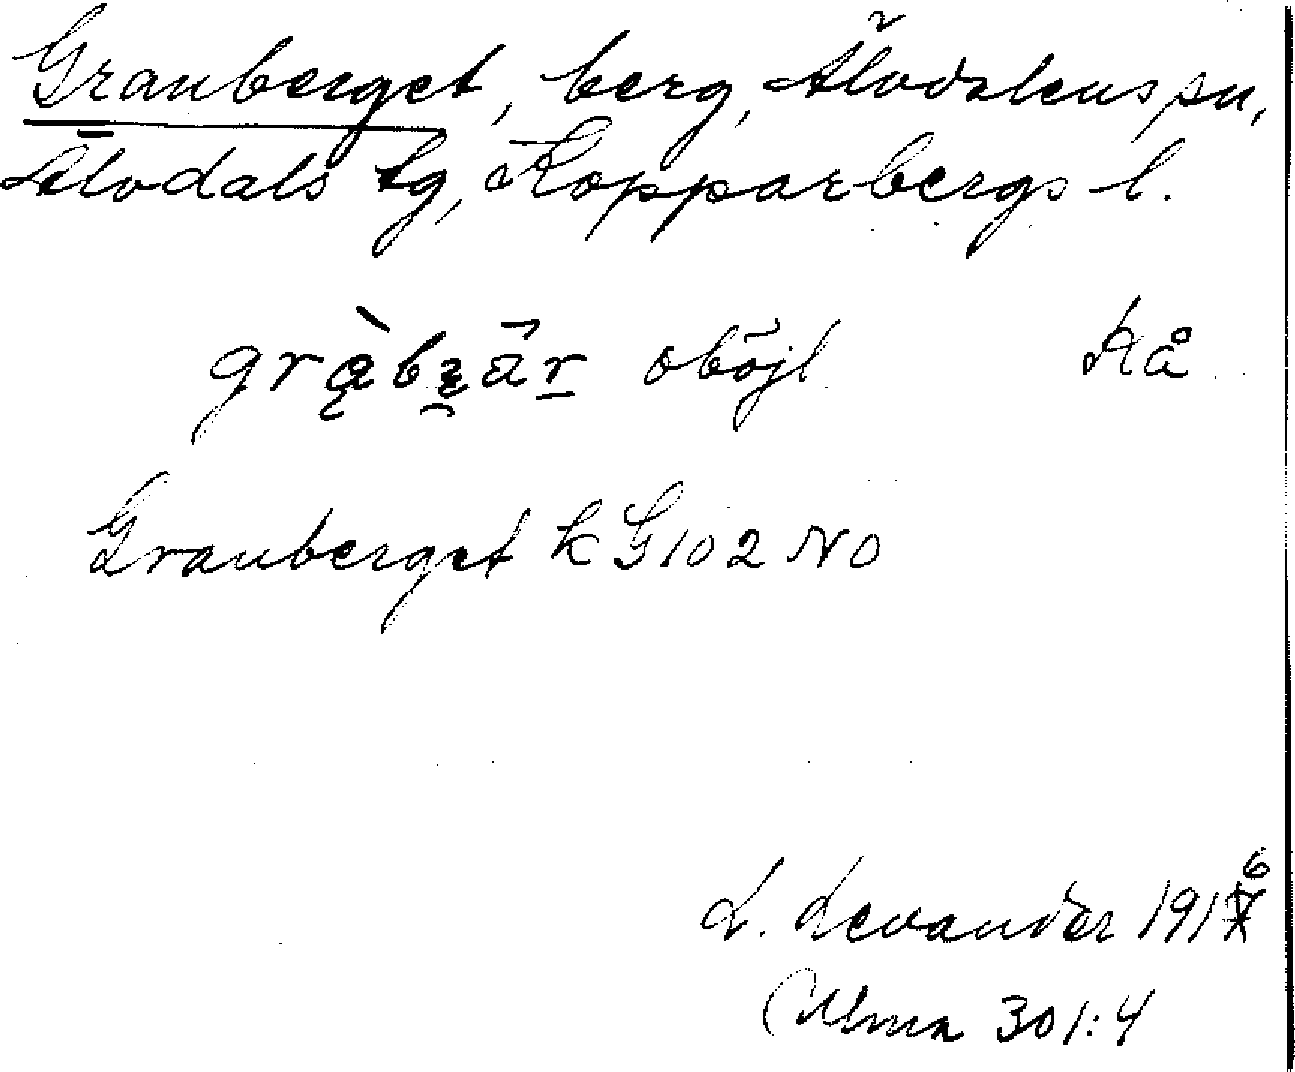 Granberget, berg, Älvdalens sn,
Älvdals tg, Kopparbergs l.
oböjl Kå
Granberget k G102 NO
L. Levander 1916
(Ulma 301:4